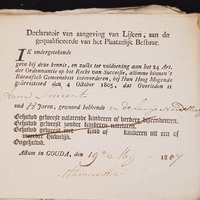 Declaratoir van aangeving van Lijken, aan de
gequalificeerde van het Plaatzelijk Bestuur.
IK ondergetekende
geve bij deze kennis, en zulks ter voldoening aan het 24 Art.
der Ordonnantie op het Recht van Successie, alomme binnen 't
Bataafsch Gemeenebest intevoeren, bij Hun Hoog Mogende
gearresteerd den 4 October 1805, dat Overleden is
oud Jaren, gewoond hebbende
Gehuwd geweest nalatende kinderen of verdere descendenten.
Gehuwd geweest zonder kinderen natelaten.
Gehuwd geweest met kind of kinderen uit een of
Ongehuwd.
Actum in GOUDA, den 19e May 1807